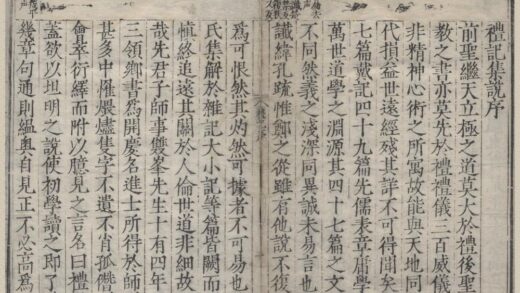 禮記集說序
前聖繼天立極之道莫大於禮後聖
教之書亦莫先於禮禮儀三百威儀
非精神心術之所寓故能與天地同
代損益世遠經殘其詳不可得聞矣
七篇戴記四十九篇先儒表章庸學
萬世道學之淵源其四十七篇之文
不同然義之淺深同異誠未易言也
讖緯孔疏惟鄭之從雖有他說不復
為可恨然其灼然可據者不可易也
氏集解於雜記大小記等篇皆闕而
慎終追遠其關於人倫世道非細故
哉先君子師事雙峯先生十有四年
三領鄉書為開慶名進士所得於師
甚多中罹煨燼隻字不遺不肖孤僭
會萃衍繹而附以臆見之言名曰禮
蓋欲以坦明之說使初學讀之即了
幾章句通則縕奧自見正不必高為